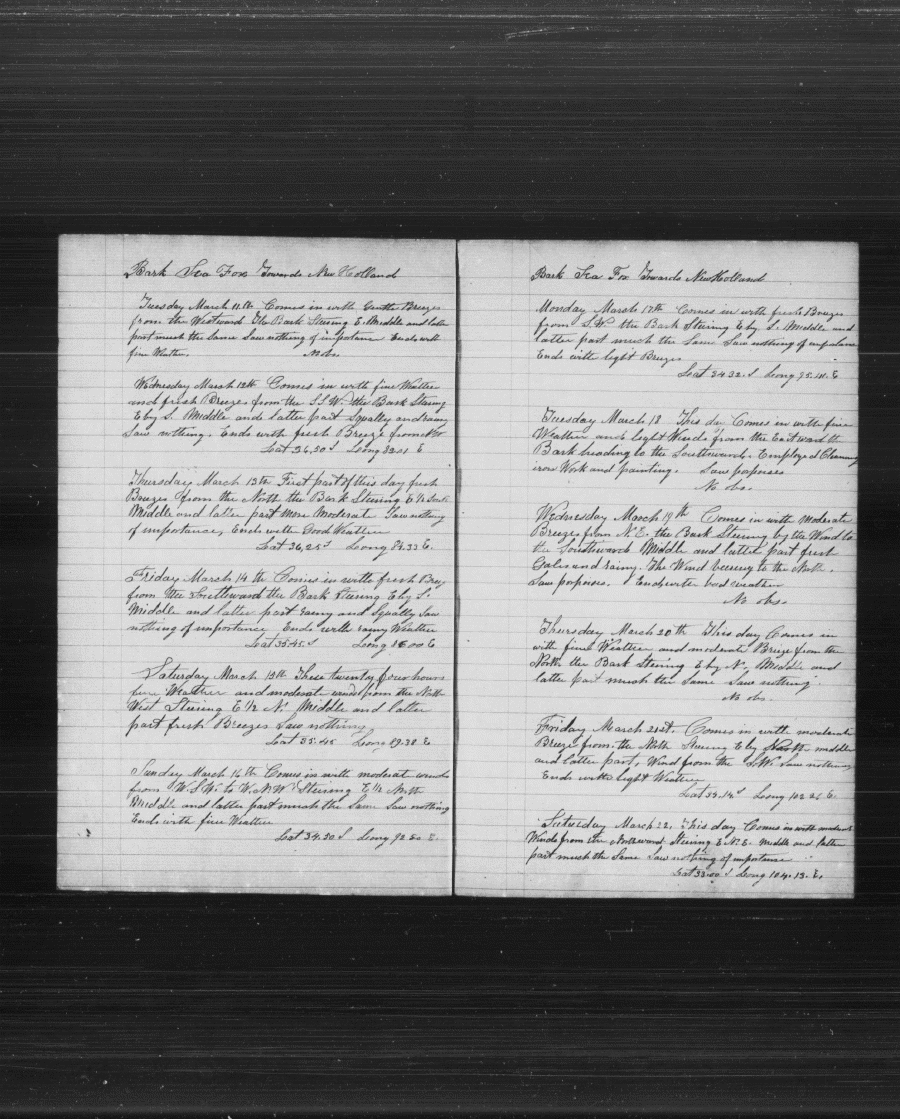 Bark Sea Fox Towards New Holland
Tuesday March 11th Comes in with Gentle Breezes
from the Westward The Bark Steering E. Middle and latter
part much the same Saw nothing of importance Ends with
fine Weather. No obs.
Wednesday March 12th Comes in with fine Weather
and fresh Breezes from the S.S.W. the Bark Steering
E by S. Middle and latter part Squally and rainy
Saw nothing. Ends with fresh Breeze from
Lat 36,50 S Long E
Thursday March 13th First part of this day fresh
Breezes from the North the Bark Stering E 1/2 South
Middle and latter part More Moderate Saw nothing
of importance, Ends with Good Weather
Lat 36,25 S Loong 84.33 E.
Friday March 14 th Comes in with fresh Breez
from the Southward the Bark Steering E by S.
Middle and latter part rainy and Squally Saw
nothing of importance Ends with rainy Weather
Lat 35.45. S Long 00 E
Saturday March 15th These twenty four hours
fine Weather and moderate wind from the North
West Steering E 1/2 N. Middle and latter
part fresh Breezes Saw nothing
Lat 35.45 Long 89.38 E
Sunday March 16th Comes in with moderate winds
from W.S.W. to W.N.W. Steering E 1/2 North
Middle and latter part much the Same Saw nothing
Ends with fine Weather
Lat 34.50 S Long 92 E.
Bark Sea Fox Towards New Holland
Monday March 17th Comes in with fresh Breezes
from S.W. the Bark Steering E by S. Middle and
latter part much the Same Saw nothing of importance
Ends with light Breezes
Lat 34 32. S Loong 95.41. E
Tuesday March 18 This day Comes in with fine
Weather and light Winds from the Eastward the
Bark heading to the Southward. Employed Cleaning
iron Work and painting. Saw porposes
No obs.
Wednesday March 19th Comes in with Moderate
Breezes from N.E. the Bark Steering by the Wind to
the Southward Middle and latter part fresh
Gales and rainy. The Wind veering to the North.
Saw porposes. Ends with bad weather
No obs.
Thursday March 20th This day Comes in
with fine Weather and moderate Breeze from the
North the Bark Steering E by N. Middle and
latter part much the Same Saw nothing
No obs.
Friday March 21st. Comes in with moderate
Breeze from the North Steering E by North middle
and latter part, Wind from the S.W. Saw nothing
Ends with light Weather
Lat 33.14 S Loong 102 E.
Saturday March 22. This day Comes in with moderate
Winds from the Northward Steering E N.E. Middle and latter
part much the Same Saw nothing of importance
Lat 33.00 S Loong 104.13. E.